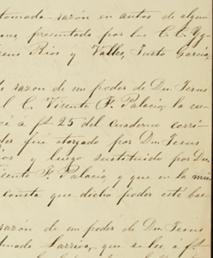 tomada razón en autos de algun
presentado por los C. C. Yg
Rios y Valles, Justo García,
razon de un poder de Don Jesus
al C. Vicente P. Palacio, la cu
á f. 25 del cuaderno corri
fué otorgado por Don Jesus
y luego sustituido por Dn
cente P. Palacio, y que en la mis
consta que dicho poder esté bas
razon de un poder de Don Jesus
Larriva, que se los á f.